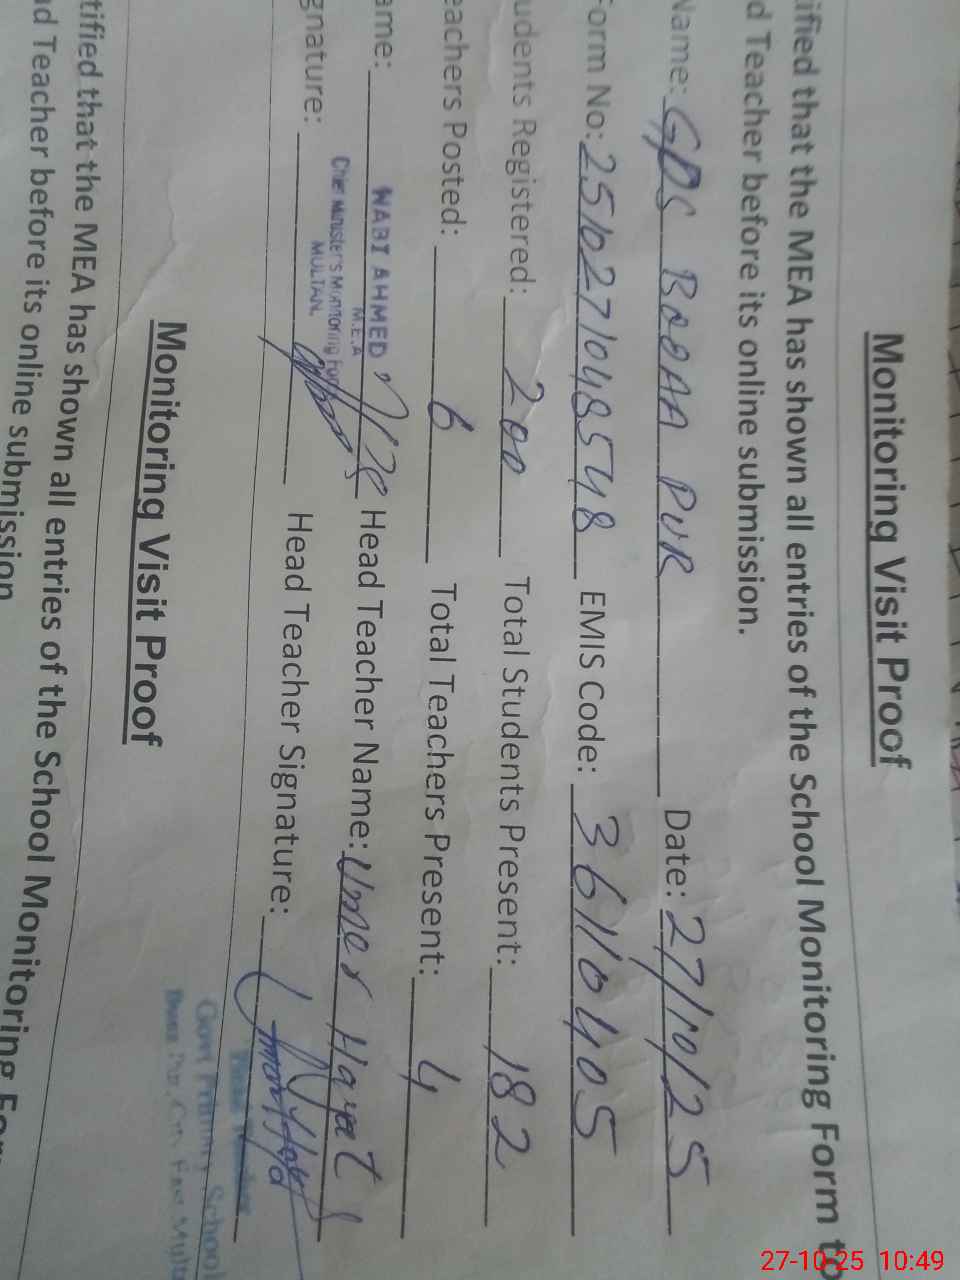 Monitoring Visit Proof
tified that the MEA has shown all entries of the School Monitoring Form to
d Teacher before its online submission.
Name: GPS BOOAA PUR Date: 27/10/25
Form No: 251027104548 EMIS Code: 36110405
udents Registered: 200 Total Students Present: 182
eachers Posted: 6 Total Teachers Present: 4
ame: NABI AHMED Head Teacher Name: Umer Hayat
M.E.A
Chief Minister's Monitoring Force
MULTAN.
gnature: Head Teacher Signature:
Head Teacher
Govt Primary School
Monitoring Visit Proof
tified that the MEA has shown all entries of the School Monitoring For
ad Teacher before its online submission
27-10-25 10:49